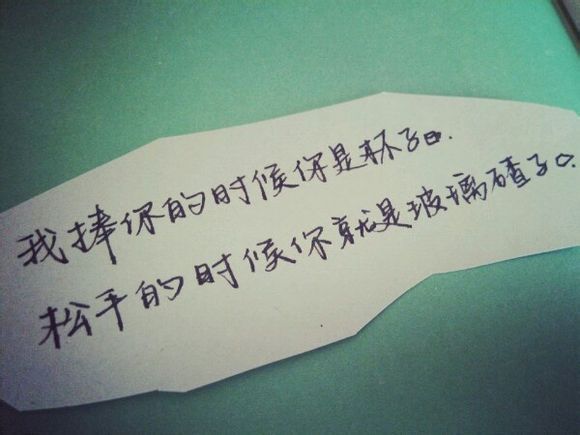 我捧你的时候你是杯子。
松手的时候你就是玻璃碴子。